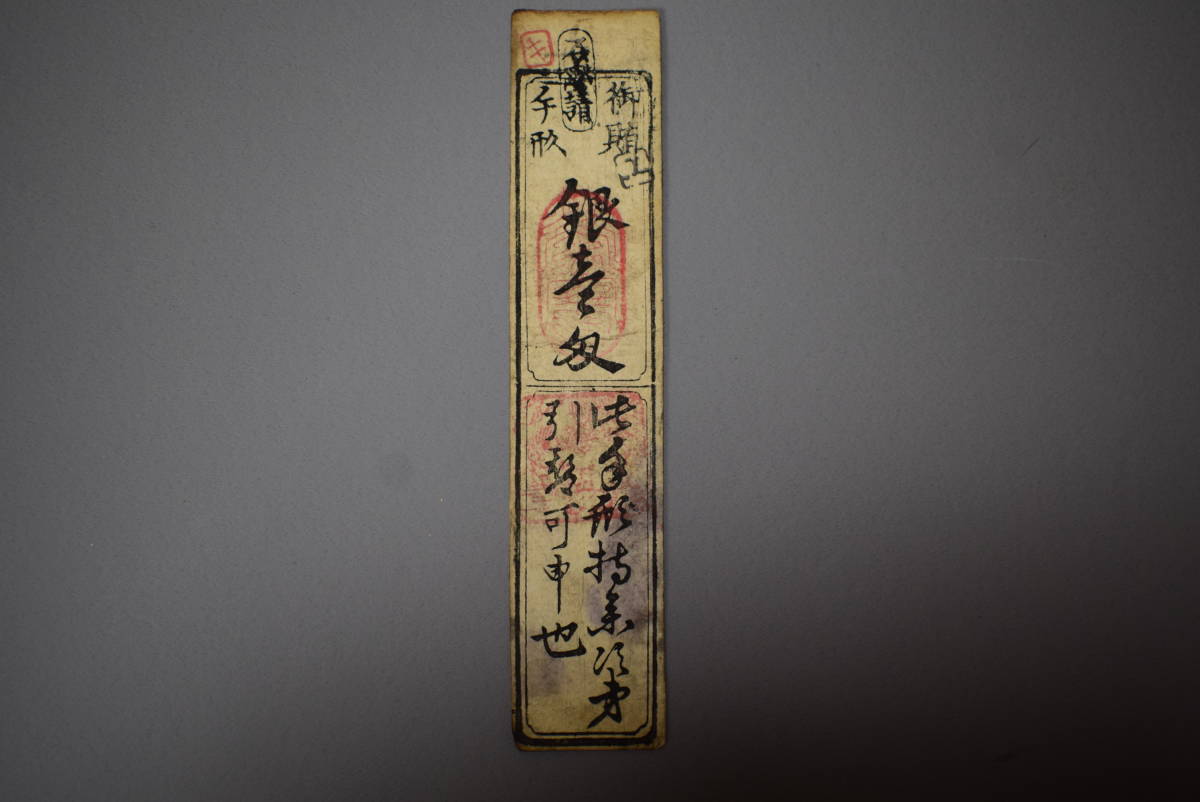 御
手形
銀壹匁
此手形持参次第
引替可申也